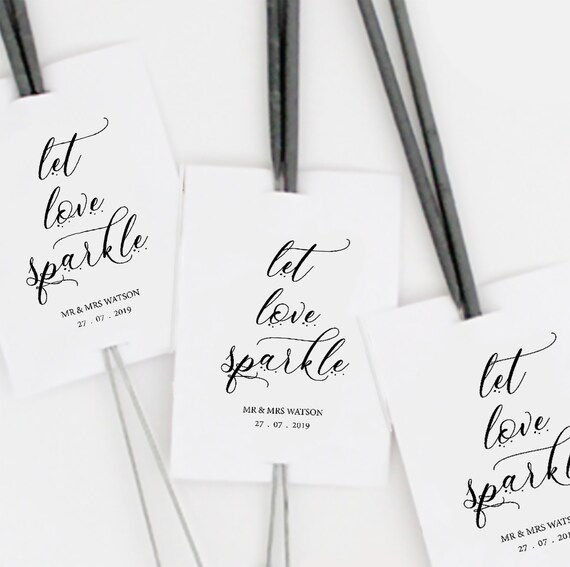 let
love
sparkle
MR & MRS WATSON
27 . 07 . 2019
let
love
sparkle
MR & MRS WATSON
27 . 07 . 2019
let
love
MR & MRS WATSON